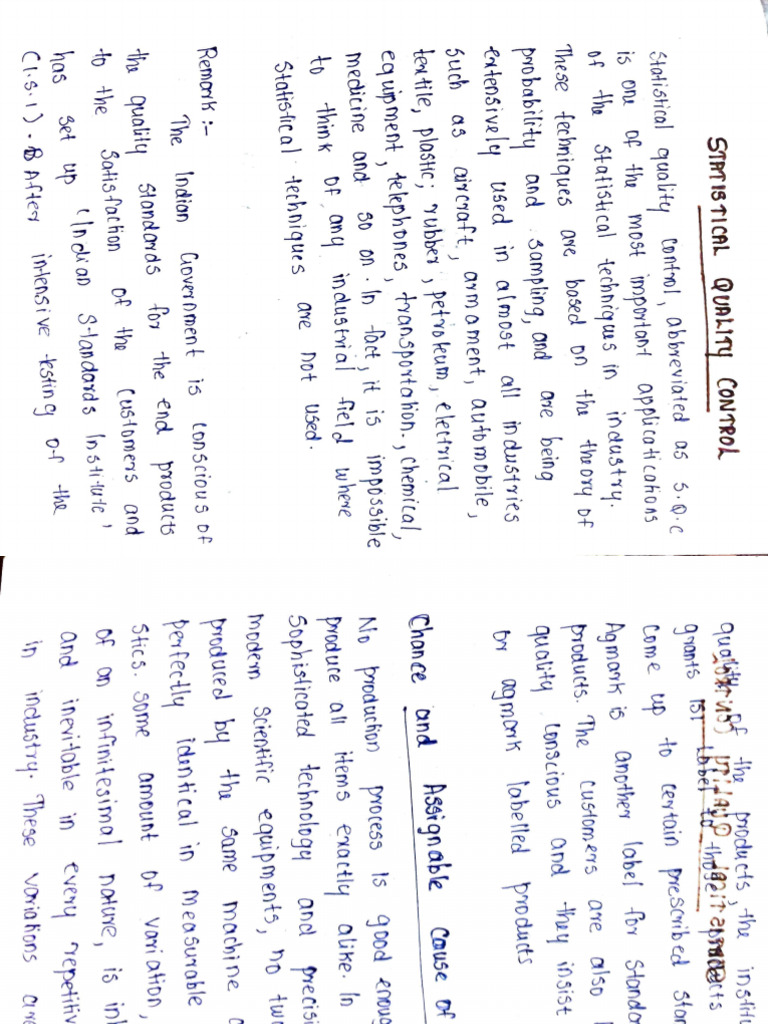 STATISTICAL QUALITY CONTROL
Statistical quality control, abbreviated as S.Q.C
is one of the most important applicatications
of the statistical techniques in industry.
These techniques are based on the theory of
probability and sampling, and are being
extensively used in almost all industries
such as aircraft, armament, automobile,
textile, plastic, rubber, petroleum, electrical
equipment, telephones, transportation., chemical,
medicine and so on. In fact, it is impossible
to think of any industrial field where
statistical techniques are not used.
Remark :-
The Indian Government is conscious of
the quality standards for the end products
to the satisfaction of the customers and
has set up 'Indian Standards Institute'
(I.S.I). After intensive testing of the
quality of the products, the institu
grants ISI Label to those products
come up to certain prescribed stan
Agmark is another label for standa
products. The customers are also
quality conscious and they insist
or agmark labelled products
Chance and Assignable Cause of
No production process is good enoug
produce all items exactly alike. In
Sophisticated technology and precisi
modern scientific equipments, no two
produced by the same machine c
perfectly identical in measurable
stics. some amount of variation,
of an infinitesimal nature, is inh
and inevitable in every repetitiv
in industry. These variations are